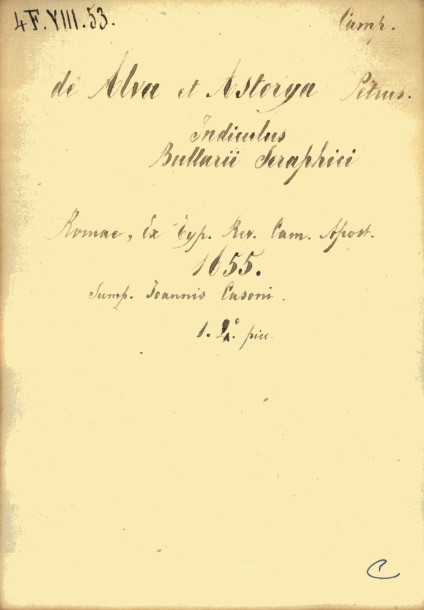 4 F. VIII. 53.
Camp.
de Alva et Astorga Petrus.
Indiculus
Bullarii Seraphici
Romae, Ex Typ. Rev. Cam. Apost.
1655.
Sump. Joannis Casoni.
1. 4° picc.
C